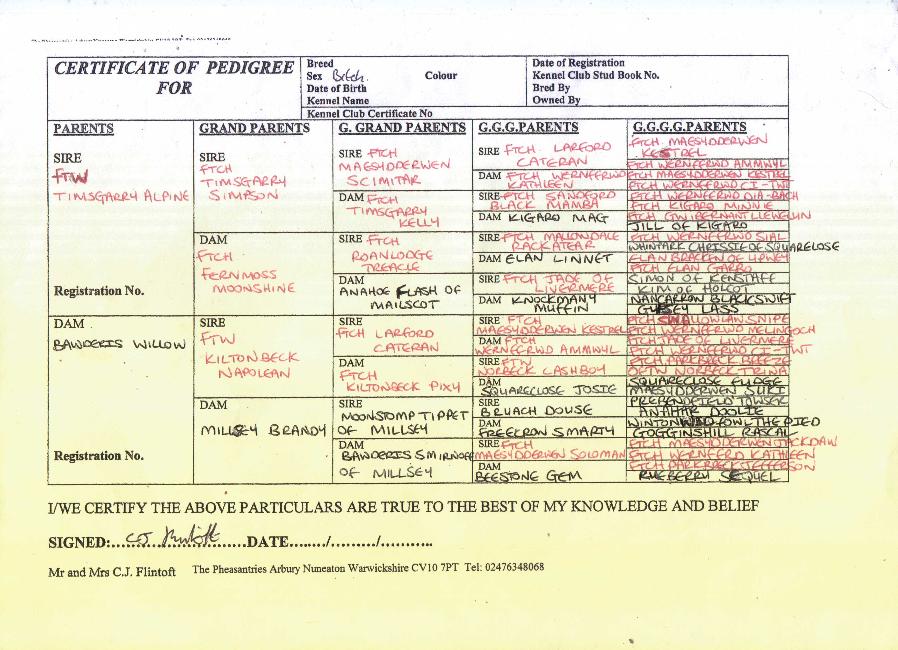 CERTIFICATE OF PEDIGREE
FOR
Breed
Sex Bitch Colour
Date of Birth
Kennel Name
Kennel Club Certificate No
Date of Registration
Kennel Club Stud Book No.
Bred By
Owned By
PARENTS
GRAND PARENTS
G. GRAND PARENTS
G.G.G.PARENTS
G.G.G.G.PARENTS
SIRE
FTW
TIMSGARRY ALPINE
Registration No.
DAM
BAWDERIS WILLOW
Registration No.
SIRE
FTCH
TIMSGARRY
SIMPSON
DAM
FTCH
FERNMOSS
MOONSHINE
SIRE
FTW
KILTONBECK
NAPOLEAN
DAM
MILLSEY BRANDY
SIRE FTCH
MAESYDDERWEN
SCIMITAR
DAM FTCH
TIMSGARRY
KELLY
SIRE FTCH
ROANLODGE
TREACLE
DAM
ANAHOE FLASH OF
MAILSCOT
SIRE
FTCH LARFORD
CATERAN
DAM
FTCH
KILTONBECK PIXY
SIRE
MOONSTOMP TIPPET
OF MILLSEY
DAM
BAWDERIS SMIRNOFF
OF MILLSEY
SIRE FTCH LARFORD
CATERAN
DAM FTCH WERNFFRWD
KATHLEEN
SIRE FTCH SANDFORD
BLACK MAMBA
DAM KIGARO MAG
SIRE FTCH MALLOWDALE
RACKATEAR
DAM ELAN LINNET
SIRE FTCH JADE OF
LIVERMERE
DAM KNOCKMANY
MUFFIN
SIRE FTCH
MAESYDDERWEN KESTREL
DAM FTCH
WERNFFRWD AMMWYL
SIRE FTW
NORBECK CASHBOY
DAM
SQUARECLOSE JOSIE
SIRE
BRUACH DOUSE
DAM
FREECRON SMARTY
SIRE FTCH
MAESYDDERWEN SOLOMAN
DAM
BEESTONE GEM
FTCH MAESYDDERWEN
KESTREL
FTCH WERNFFRWD AMMWYL
FTCH MAESYDDERWEN KESTREL
FTCH WERNFFRWD CI-TWT
FTCH WERNFFRWD DIA-BACH
FTCH KIGARO MINNIE
FTCH GWIBERNANT LLEWELYN
JILL OF KIGARO
FTCH WERNFFRWD SIAL
WHINPARK CHRISSIE OF SQUARELOSE
ELAN BRACKEN OF UPWEY
FTCH ELAN GARRO
SIMON OF KENSTAFF
KIM OF HOLCOT
NANCARROW BLACKSWIFT
GYPSEY LASS
FTCH SWALLOWLAWSNIPE
FTCH WERNFFRWD MELINGOCH
FTCH JADE OF LIVERMERE
FTCH WERNFFRWD CI-TWT
FTCH PARKBRECK BREEZE
OFTW NORBECK TRINA
SQUARECLOSE FUDGE
MAESYDDERWEN SUKI
PREBENDFIELD TOWSER
ANAHAR DOOLIE
WINTONWILDFOWL THE PIED
GOGGINSHILL RASCAL
FTCH MAESYDDERWEN JACKDAW
FTCH WERNFFRD KATHLEEN
FTCH PARKBRECK JEFFERSON
RYEBERRY SEQUEL
I/WE CERTIFY THE ABOVE PARTICULARS ARE TRUE TO THE BEST OF MY KNOWLEDGE AND BELIEF
SIGNED:....CJ Flintoft.......DATE......./........./...........
Mr and Mrs C.J. Flintoft The Pheasantries Arbury Nuneaton Warwickshire CV10 7PT Tel: 02476348068